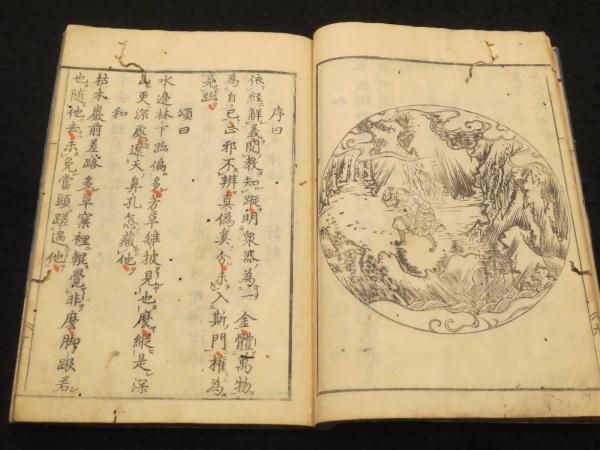 序曰
依經解義閲教知蹤明衆器為一金體萬物
為自己正邪不辨真偽奚分未入斯門權為
見跡
頌曰
水邊林下跡偏多芳草離披見也麼縱是深
山更深處遼天鼻孔怎藏他
和
枯木巖前差路多草窠裡輥覺非麼脚跟若
也隨他去未免當頭蹉過他